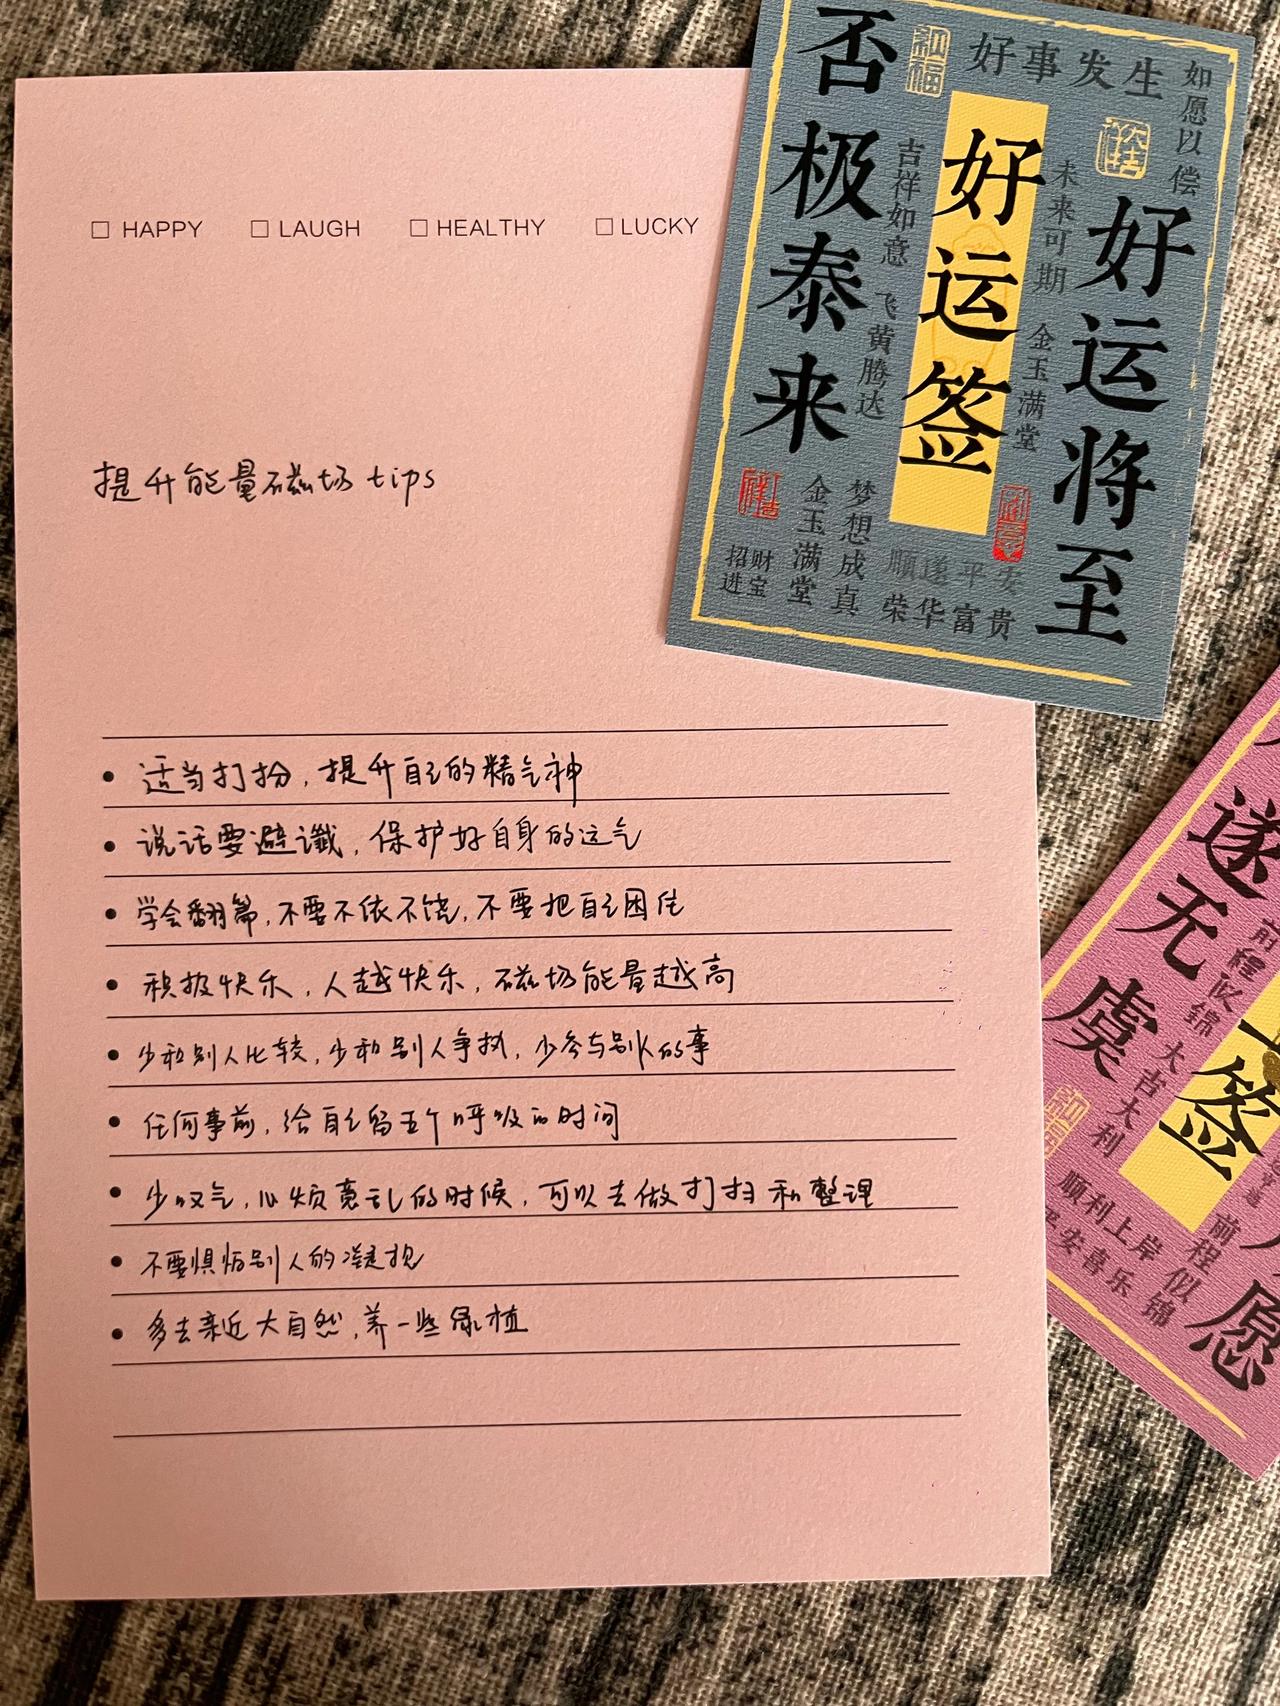 □ HAPPY □ LAUGH □ HEALTHY □ LUCKY
提升能量磁场 tips
• 适当打扮，提升自己的精气神
• 说话要避谶，保护好自身的运气
• 学会翻篇，不要不依不饶，不要把自己困住
• 积极快乐，人越快乐，磁场能量越高
• 少和别人比较，少和别人争执，少参与别人的事
• 任何事前，给自己留五个呼吸的时间
• 少叹气，心烦意乱的时候，可以去做打扫和整理
• 不要惧怕别人的凝视
• 多去亲近大自然，养一些绿植
否极泰来
好事发生
如愿以偿
吉祥如意
飞黄腾达
好运签
未来可期
金玉满堂
好运将至
招财进宝
金玉满堂
梦想成真
顺遂平安
荣华富贵
遂无虞
前程似锦
大吉大利
签
顺利上岸
平安喜乐
前程似锦
愿